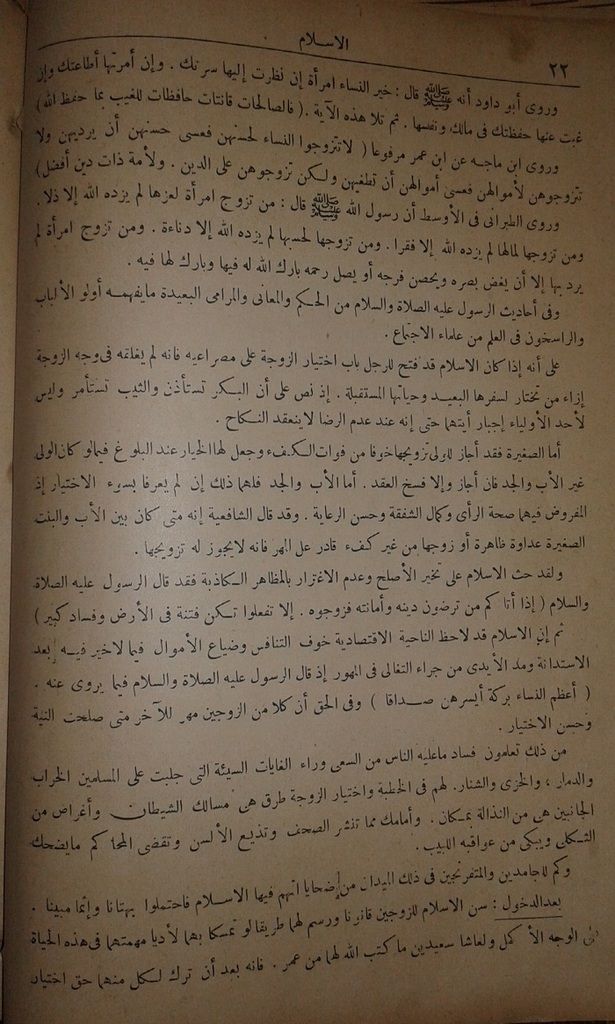 الاسلام
٢٢
وروى أبو داود أنه ﷺ قال : خير النساء امرأة إن نظرت إليها سرتك . وإن أمرتها أطاعتك وإن
غبت عنها حفظتك فى مالك ونفسها . ثم تلا هذه الآية . ( فالصالحات قانتات حافظات للغيب بما حفظ الله )
وروى ابن ماجه عن ابن عمر مرفوعا ( لاتتزوجوا النساء لحسنهن فعسى حسنهن أن يرديهن ولا
تتزوجوهن لأموالهن فعسى أموالهن أن تطغيهن ولكن تزوجوهن على الدين . ولأمة ذات دين أفضل )
وروى الطبرانى فى الأوسط أن رسول الله ﷺ قال : من تزوج امرأة لعزها لم يزده الله إلا ذلا .
ومن تزوجها لمالها لم يزده الله إلا فقرا . ومن تزوجها لحسبها لم يزده الله إلا دناءة . ومن تزوج امرأة لم
يرد بها إلا أن يغض بصره ويحصن فرجه أو يصل رحمه بارك الله له فيها وبارك لها فيه .
وفى أحاديث الرسول عليه الصلاة والسلام من الحكم والمعانى والمرامى البعيدة مايفهمه أولو الألباب
والراسخون فى العلم من علماء الاجتماع .
على أنه إذا كان الاسلام قد فتح للرجل باب اختيار الزوجة على مصراعيه فانه لم يغلقه فى وجه الزوجة
إزاء من تختار لسفرها البعيد وحياتها المستقبلة . إذ نص على أن البكر تستأذن والثيب تستأمر وليس
لأحد الأولياء إجبار أيتهما حتى إنه عند عدم الرضا لاينعقد النكاح .
أما الصغيرة فقد أجاز للولى تزويجها خوفا من فوات الكفء وجعل لها الخيار عند البلوغ فيما لو كان الولى
غير الأب والجد فان أجاز وإلا فسخ العقد . أما الأب والجد فلهما ذلك إن لم يعرفا بسوء الاختيار إذ
المفروض فيهما صحة الرأى وكمال الشفقة وحسن الرعاية . وقد قال الشافعية إنه متى كان بين الأب والبنت
الصغيرة عداوة ظاهرة أو زوجها من غير كفء قادر على المهر فانه لايجوز له تزويجها .
ولقد حث الاسلام على تخير الأصلح وعدم الاغترار بالمظاهر الكاذبة فقد قال الرسول عليه الصلاة
والسلام ( إذا أتاكم من ترضون دينه وأمانته فزوجوه . إلا تفعلوا تكن فتنة فى الأرض وفساد كبير )
ثم إن الاسلام قد لاحظ الناحية الاقتصادية خوف التنافس وضياع الأموال فيما لاخير فيه بعد
الاستدانة ومد الأيدى من جراء التغالى فى المهور إذ قال الرسول عليه الصلاة والسلام فيما يروى عنه .
( أعظم النساء بركة أيسرهن صداقا ) وفى الحق أن كلا من الزوجين مهر للآخر متى صلحت النية
وحسن الاختيار .
من ذلك تعلمون فساد ماعليه الناس من السعى وراء الغايات السيئة التى جلبت على المسلمين الخراب
والدمار ، والخزى والشنار . لهم فى الخطبة واختيار الزوجة طرق هى مسالك الشيطان وأغراض من
الجانبين هى من النذالة بمكان . وأمامك مما تنشر الصحف وتذيع الألسن وتقضى المحاكم مايضحك
الثكلى ويبكى من عواقبه اللبيب .
وكم للجامدين والمتفرنجين فى ذلك الميدان من ضحايا اتهم فيها الاسلام فاحتملوا بهتانا وإثما مبينا .
بعد الدخول : سن الاسلام للزوجين قانونا ورسم لهما طريقا لو تمسكا بهما لأديا مهمتهما فى هذه الحياة
على الوجه الأكمل ولعاشا سعيدين ما كتب الله لهما من عمر . فانه بعد أن ترك لكل منهما حق اختيار